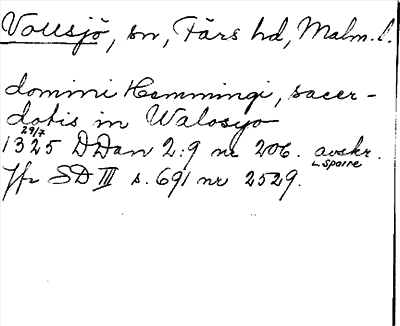 Vollsjö, sn, Färs hd, Malm. l.
domini Hemmingi, sacer-
dotis in Walosyo
29/7
1325 DDan 2:9 nr 206. avskr.
Jfr SD III s. 691 nr 2529.